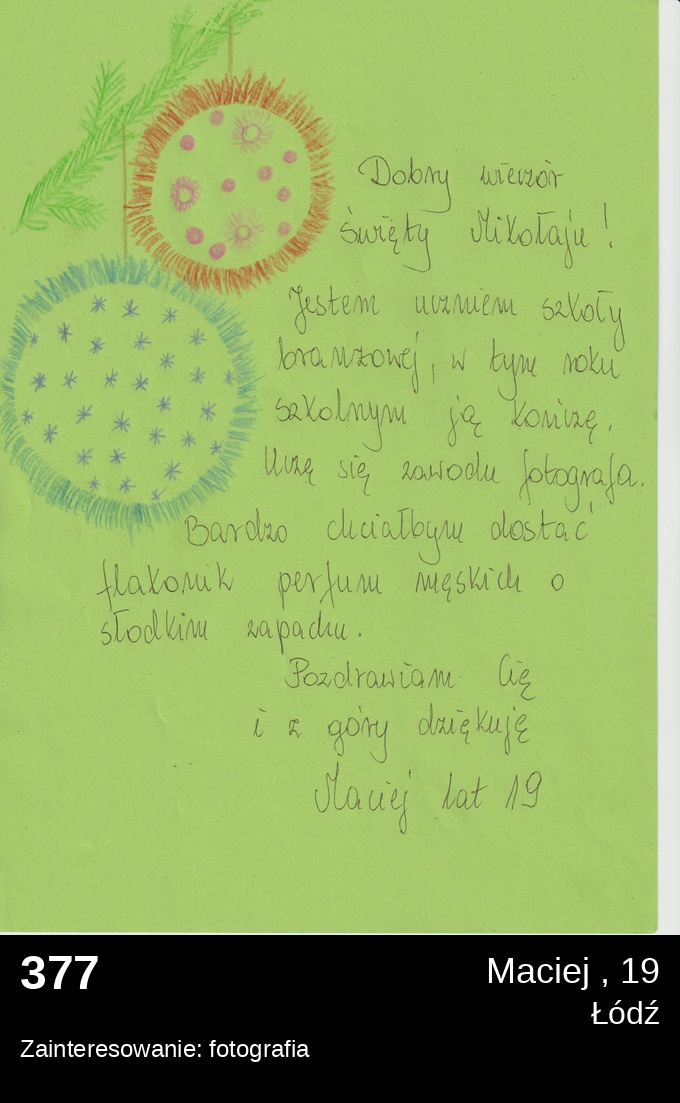 Dobry wieczór
Święty Mikołaju!
Jestem uczniem szkoły
branżowej, w tym roku
szkolnym ją kończę.
Uczę się zawodu fotografa.
Bardzo chciałbym dostać
flakonik perfum męskich o
słodkim zapachu.
Pozdrawiam Cię
i z góry dziękuję
Maciej lat 19
377
Maciej , 19
Łódź
Zainteresowanie: fotografia